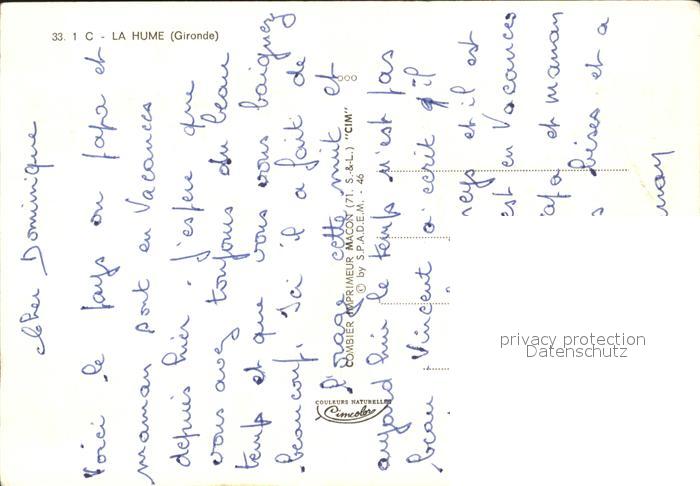 33. 1 C - LA HUME (Gironde)
Cher Dominique
Voici le pays ou papa et
maman sont en vacances
depuis hier. J'espère que
vous avez toujours du beau
temps et que vous vous baignez
beaucoup. Ici il a fait de
l'orage cette nuit et
aujourd'hui le temps n'est pas
beau Vincent a écrit qu'il
reys et il est
est en Vacances
apa et maman
s bises et a
COMBIER IMPRIMEUR MACON (71. S.-&-L.) "CIM"
© by S.P.A.D.E.M. - 46
COULEURS NATURELLES
Cimcolor
privacy protection
Datenschutz